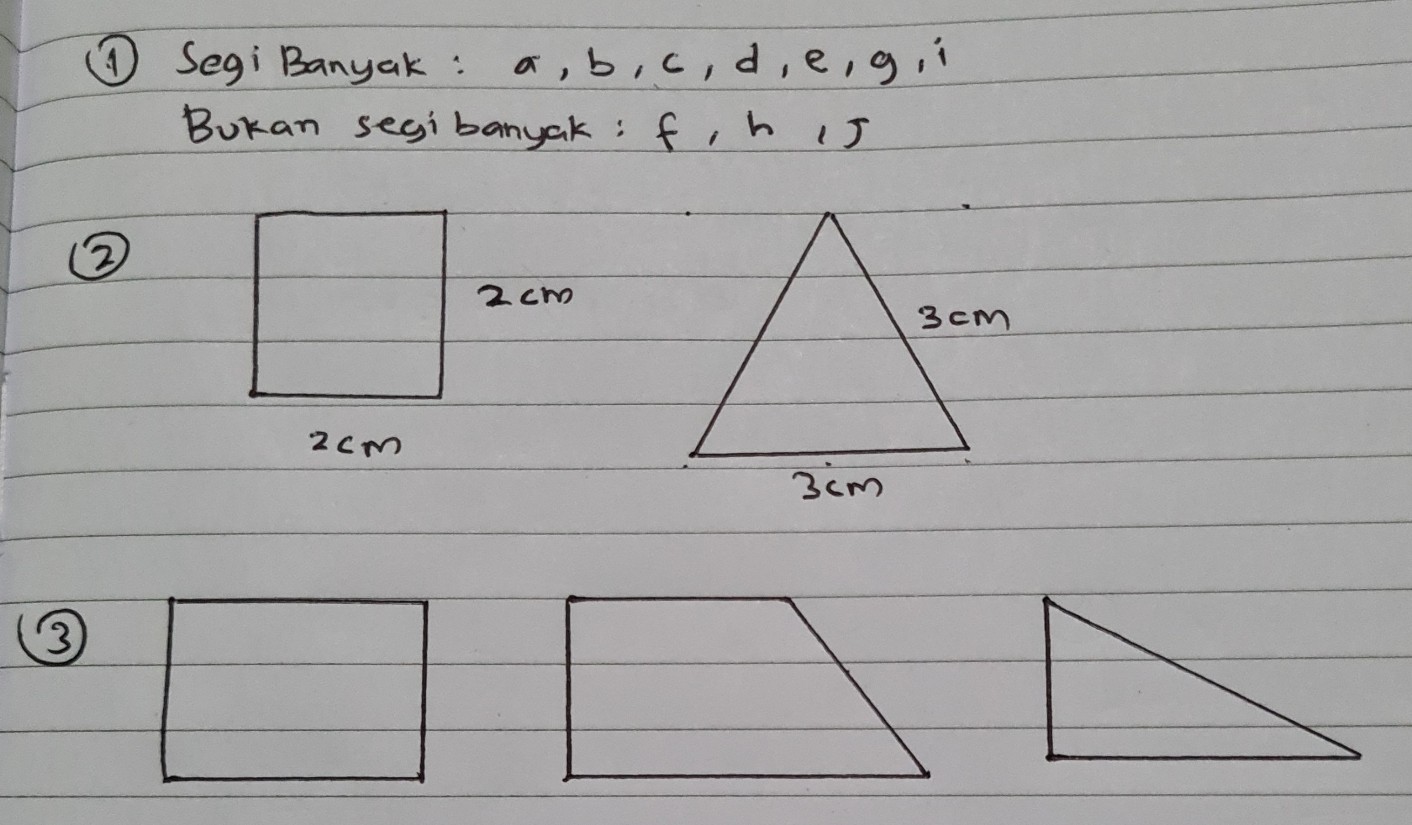 ① Segi Banyak : a, b, c, d, e, g, i
Bukan segi banyak : f, h, j
②
2 cm
3 cm
2 cm
3 cm
③